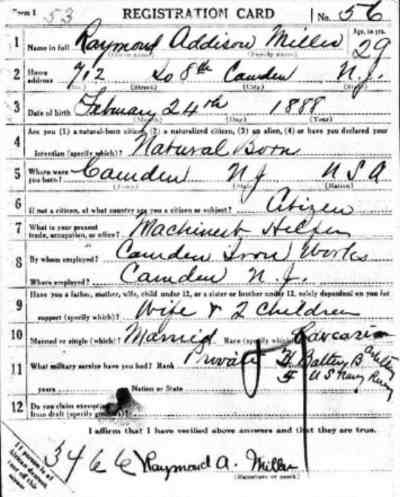 Form 1 53 REGISTRATION CARD No. 56
1 Name in full Raymond Addison Miller Age, in yrs. 29
(Given name) (Family name)
2 Home address 712 So 8th Camden N.J.
(No.) (Street) (City) (State)
3 Date of birth February 24th 1888
(Month) (Day) (Year)
Are you (1) a natural-born citizen, (2) a naturalized citizen, (3) an alien, (4) or have you declared your
4 intention (specify which)? Natural Born
5 Where were you born? Camden NJ USA
(Town) (State) (Nation)
6 If not a citizen, of what country are you a citizen or subject? Citizen
7 What is your present trade, occupation, or office? Machinist Helper
8 By whom employed? Camden Iron Works
Where employed? Camden N.J.
Have you a father, mother, wife, child under 12, or a sister or brother under 12, solely dependent on you for
9 support (specify which)? Wife & 2 Children
10 Married or single (which)? Married Race (specify which)? Caucasian
11 What military service have you had? Rank Private Battery B
years Nation or State U S Navy
12 Do you claim exemption from draft (specify grounds)?
I affirm that I have verified above answers and that they are true.
3466 Raymond A. Miller
(Signature or mark)